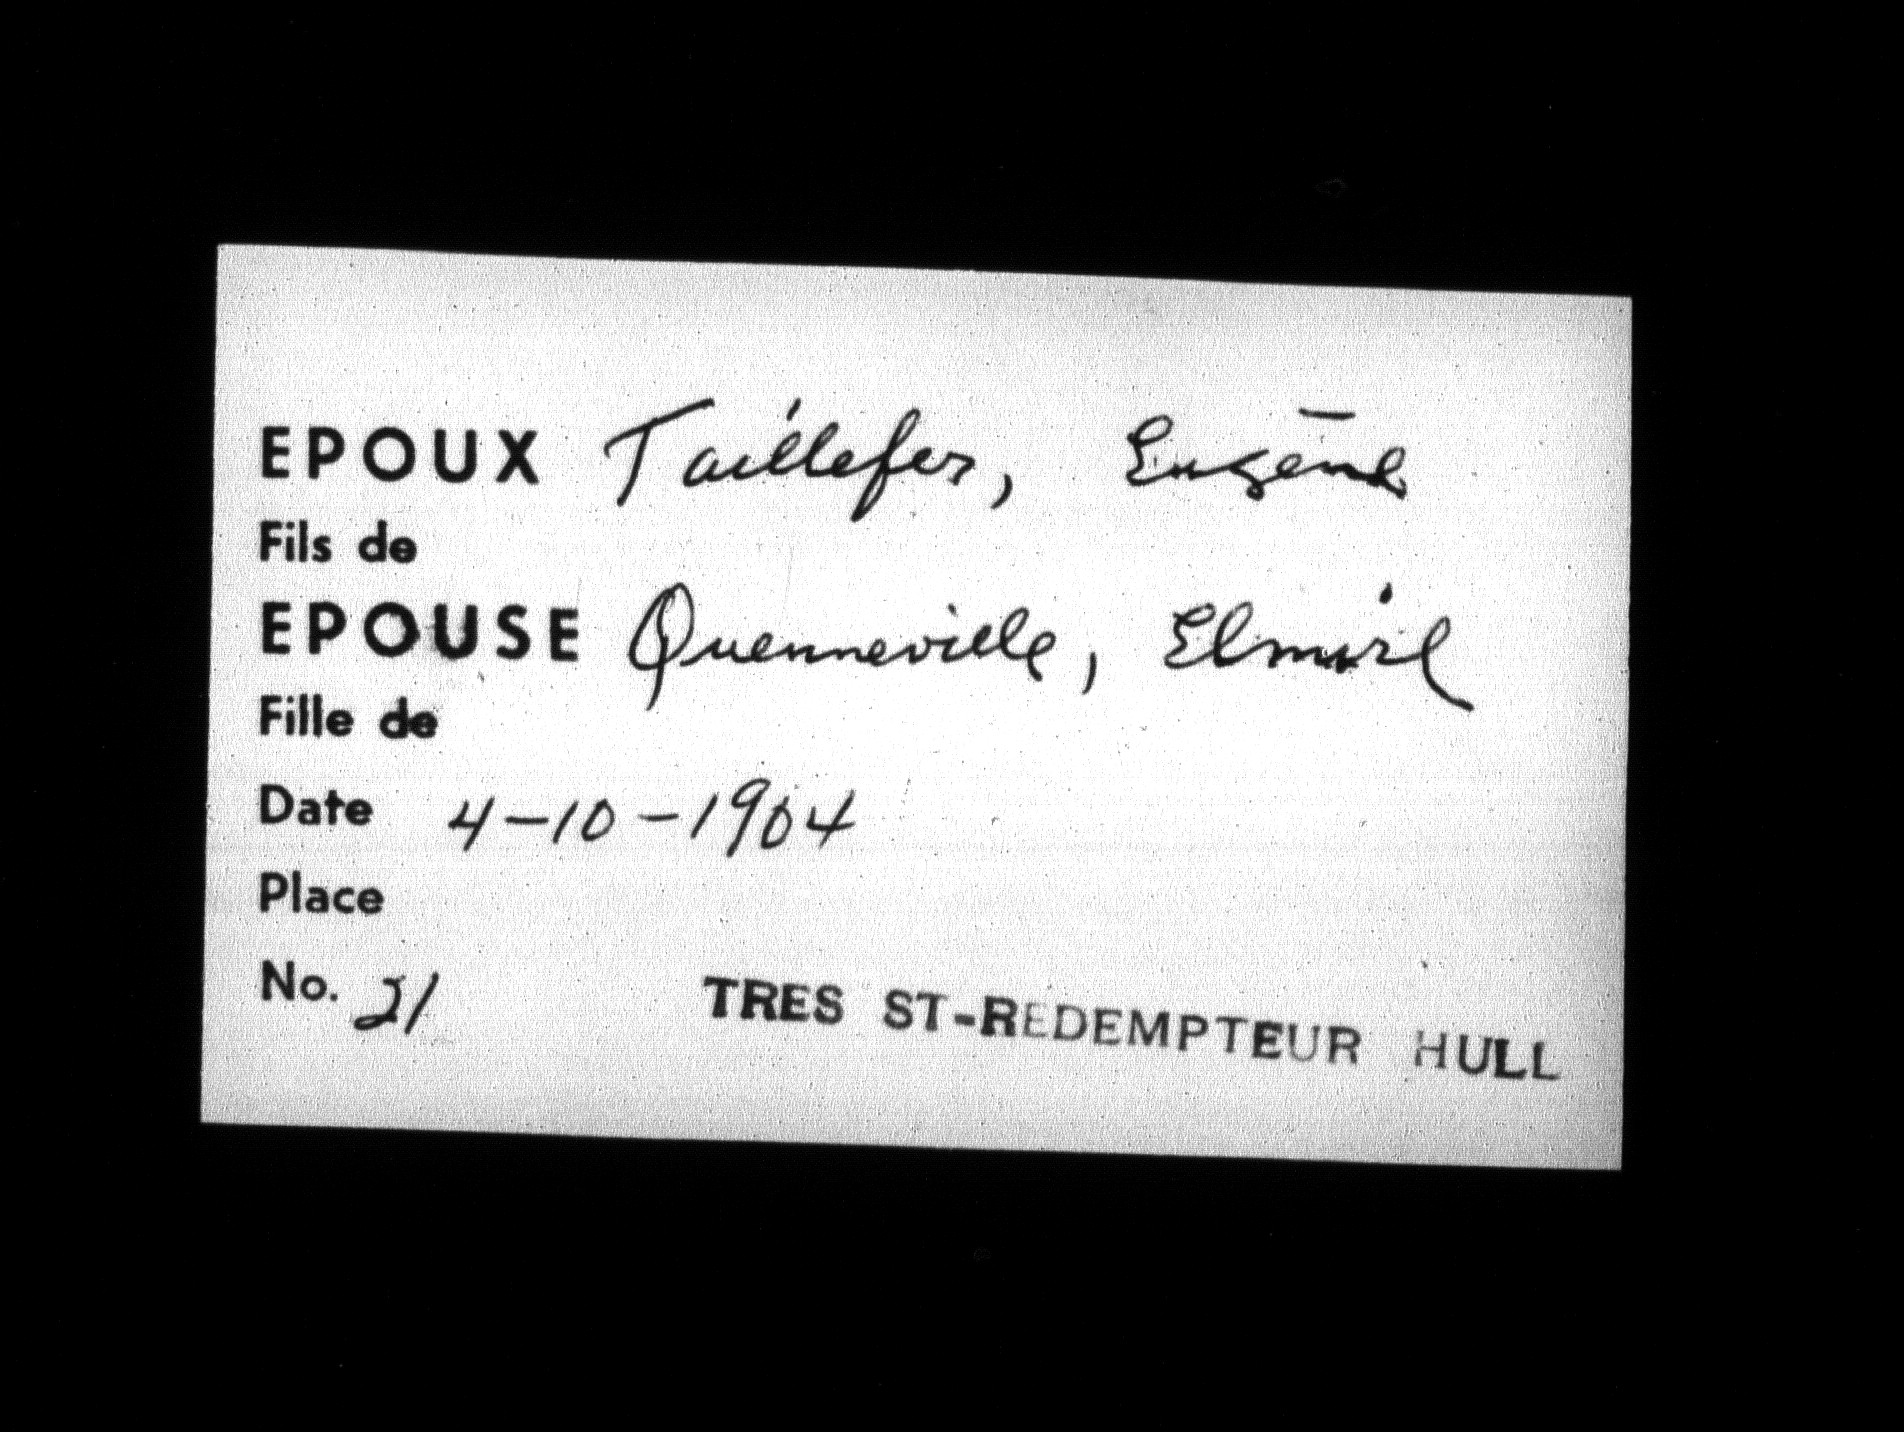 EPOUX Taillefer, Eugène
Fils de
EPOUSE Quenneville,
Fille de
Date 4-10-1904
Place
No. 21
TRES ST-REDEMPTEUR HULL